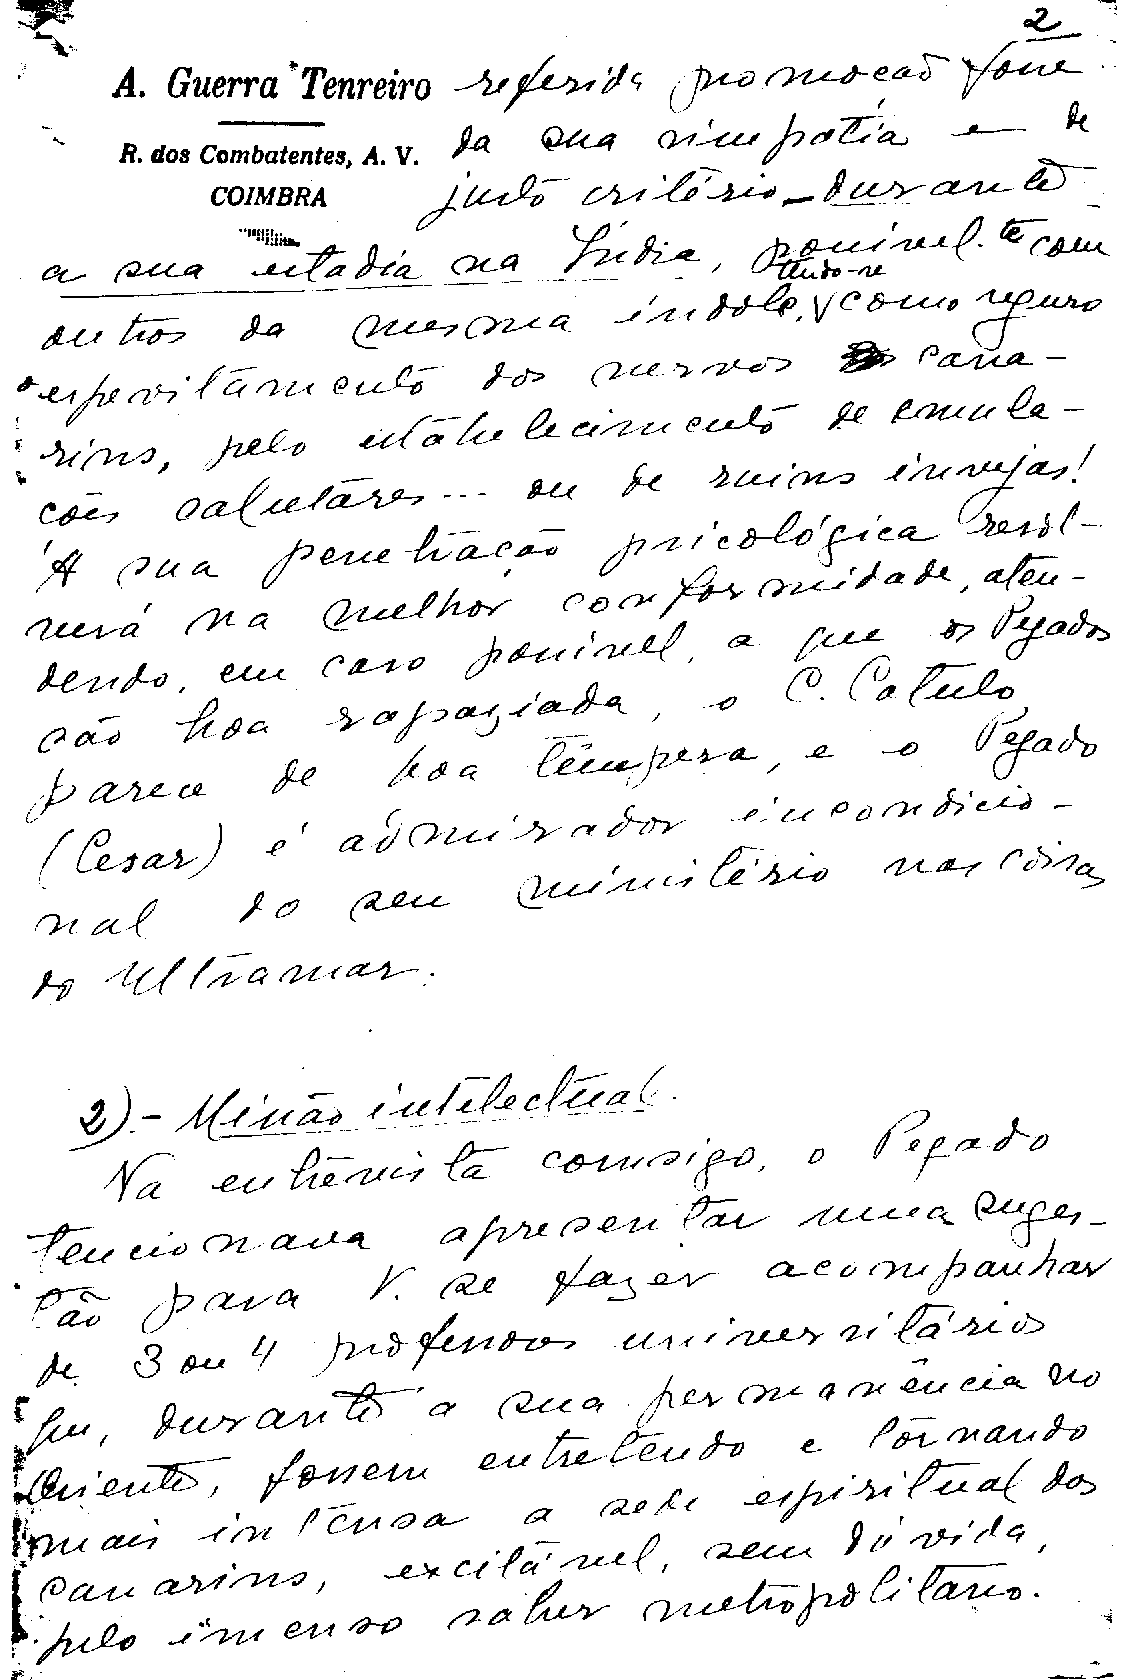 2
A. Guerra Tenreiro
R. dos Combatentes, A. V.
COIMBRA
referida promoção fosse
da sua simpatia e de
justo critério – durante
a sua estadia na Índia, possivel.te com
outros da mesma indole, tendo-se como seguro
o espevitamento dos nervos cana-
rins, pelo estabelecimento de emula-
ções salutares... ou de ruins invejas!
A sua penetração psicológica resol-
verá na melhor conformidade, aten-
dendo, em caso possível, a que os Pegados
são boa rapaziada, o C. Catulo
parece de boa têmpera, e o Pegado
(Cesar) é admirador incondicio-
nal do seu ministério nas côisas
do Ultramar.
2) – Missão intelectual.
Na entrevista comsigo, o Pegado
tencionava apresentar uma suges-
tão para V. se fazer acompanhar
de 3 ou 4 professores universitários
que, durante a sua permanência no
Oriente, fossem entretendo e tôrnando
mais intensa a sede espiritual dos
canarins, excitável, sem dúvida,
pelo imenso saber metropolitano.